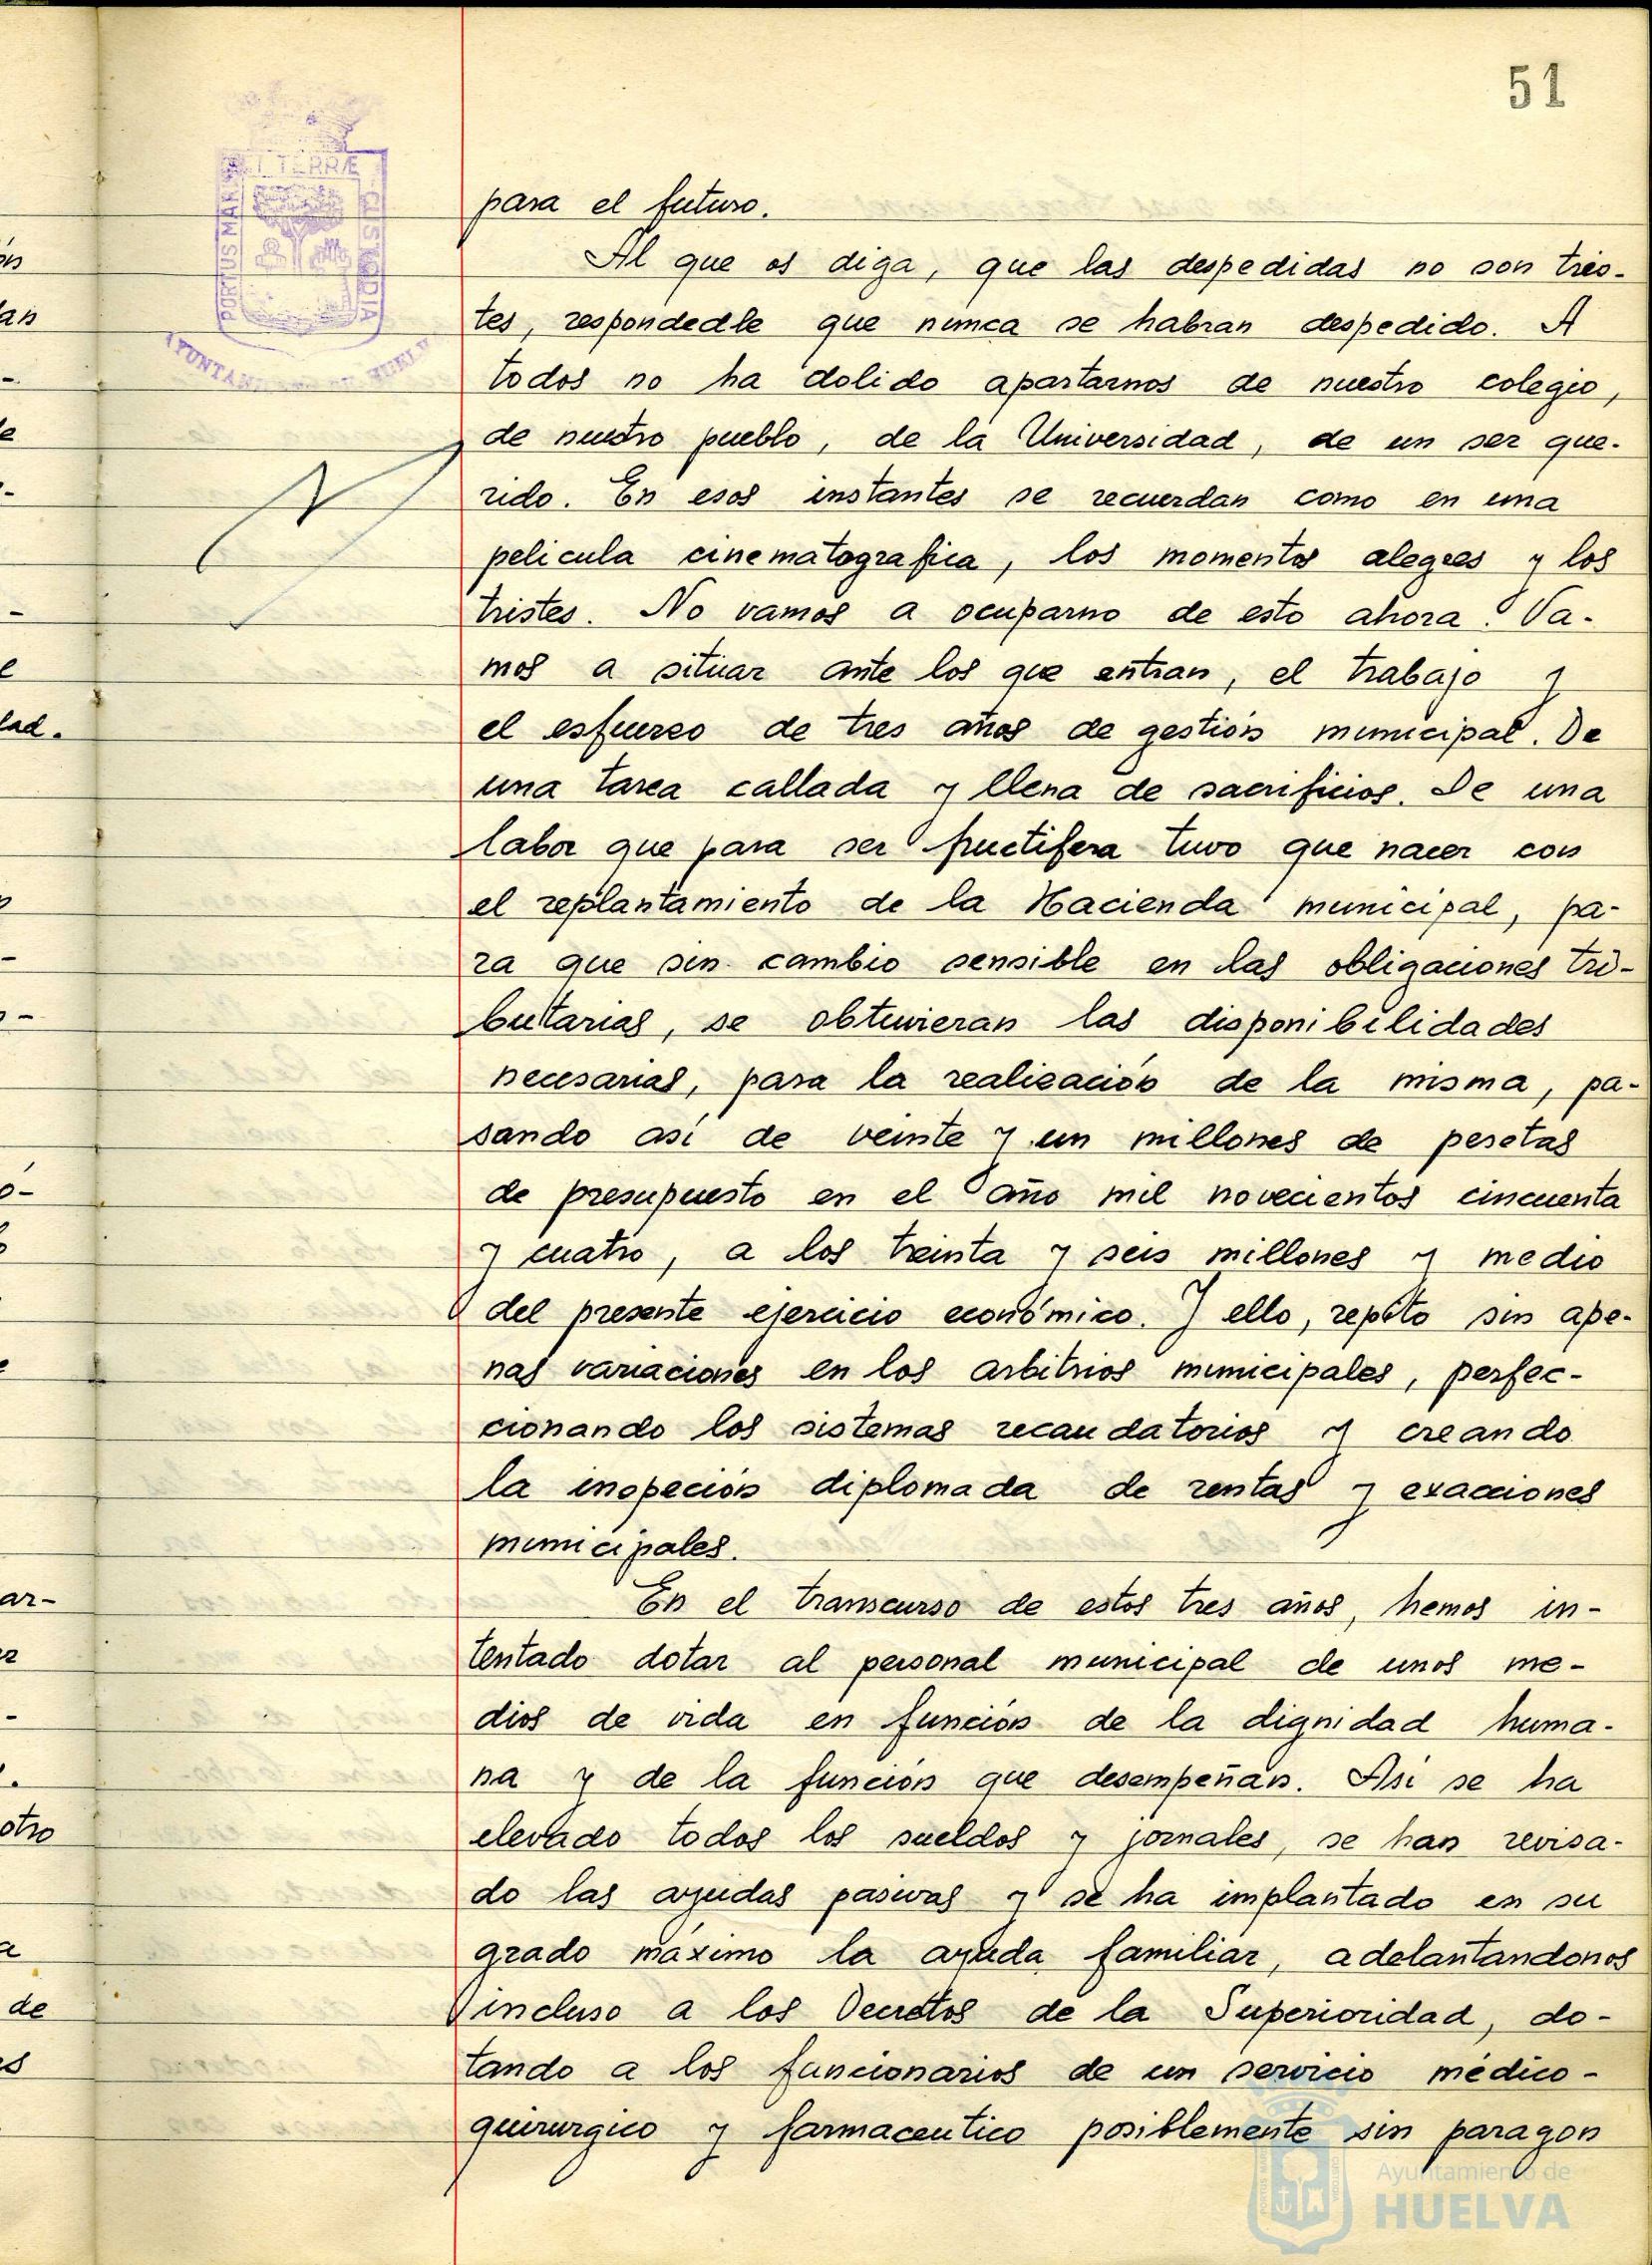 51
ET TERRÆ
PORTUS MARIS
CUSTODIA
AYUNTAMIENTO DE HUELVA
para el futuro.
Al que os diga, que las despedidas no son tris-
tes, respondedle que nunca se habran despedido. A
todos no ha dolido apartarnos de nuestro colegio,
de nuestro pueblo, de la Universidad, de un ser que-
rido. En esos instantes se recuerdan como en una
pelicula cinematografica, los momentos alegres y los
tristes. No vamos a ocuparno de esto ahora. Va-
mos a situar ante los que entran, el trabajo y
el esfuerzo de tres años de gestión municipal. De
una tarea callada y llena de sacrificios. De una
labor que para ser fructifera tuvo que nacer con
el replantamiento de la Hacienda municipal, pa-
ra que sin cambio sensible en las obligaciones tri-
butarias, se obtuvieran las disponibilidades
necesarias, para la realización de la misma, pa-
sando así de veinte y un millones de pesetas
de presupuesto en el año mil novecientos cincuenta
y cuatro, a los treinta y seis millones y medio
del presente ejercicio económico. Y ello, repito sin ape-
nas variaciones en los arbitrios municipales, perfec-
cionando los sistemas recaudatorios y creando
la inspeción diplomada de rentas y exacciones
municipales.
En el transcurso de estos tres años, hemos in-
tentado dotar al personal municipal de unos me-
dios de vida en función de la dignidad huma-
na y de la función que desempeñan. Asi se ha
elevado todos los sueldos y jornales, se han revisa-
do las ayudas pasivas y se ha implantado en su
grado máximo la ayuda familiar, adelantandonos
incluso a los Decretos de la Superioridad, do-
tando a los funcionarios de un servicio médico-
quirurgico y farmaceutico posiblemente sin paragon
Ayuntamiento de
HUELVA